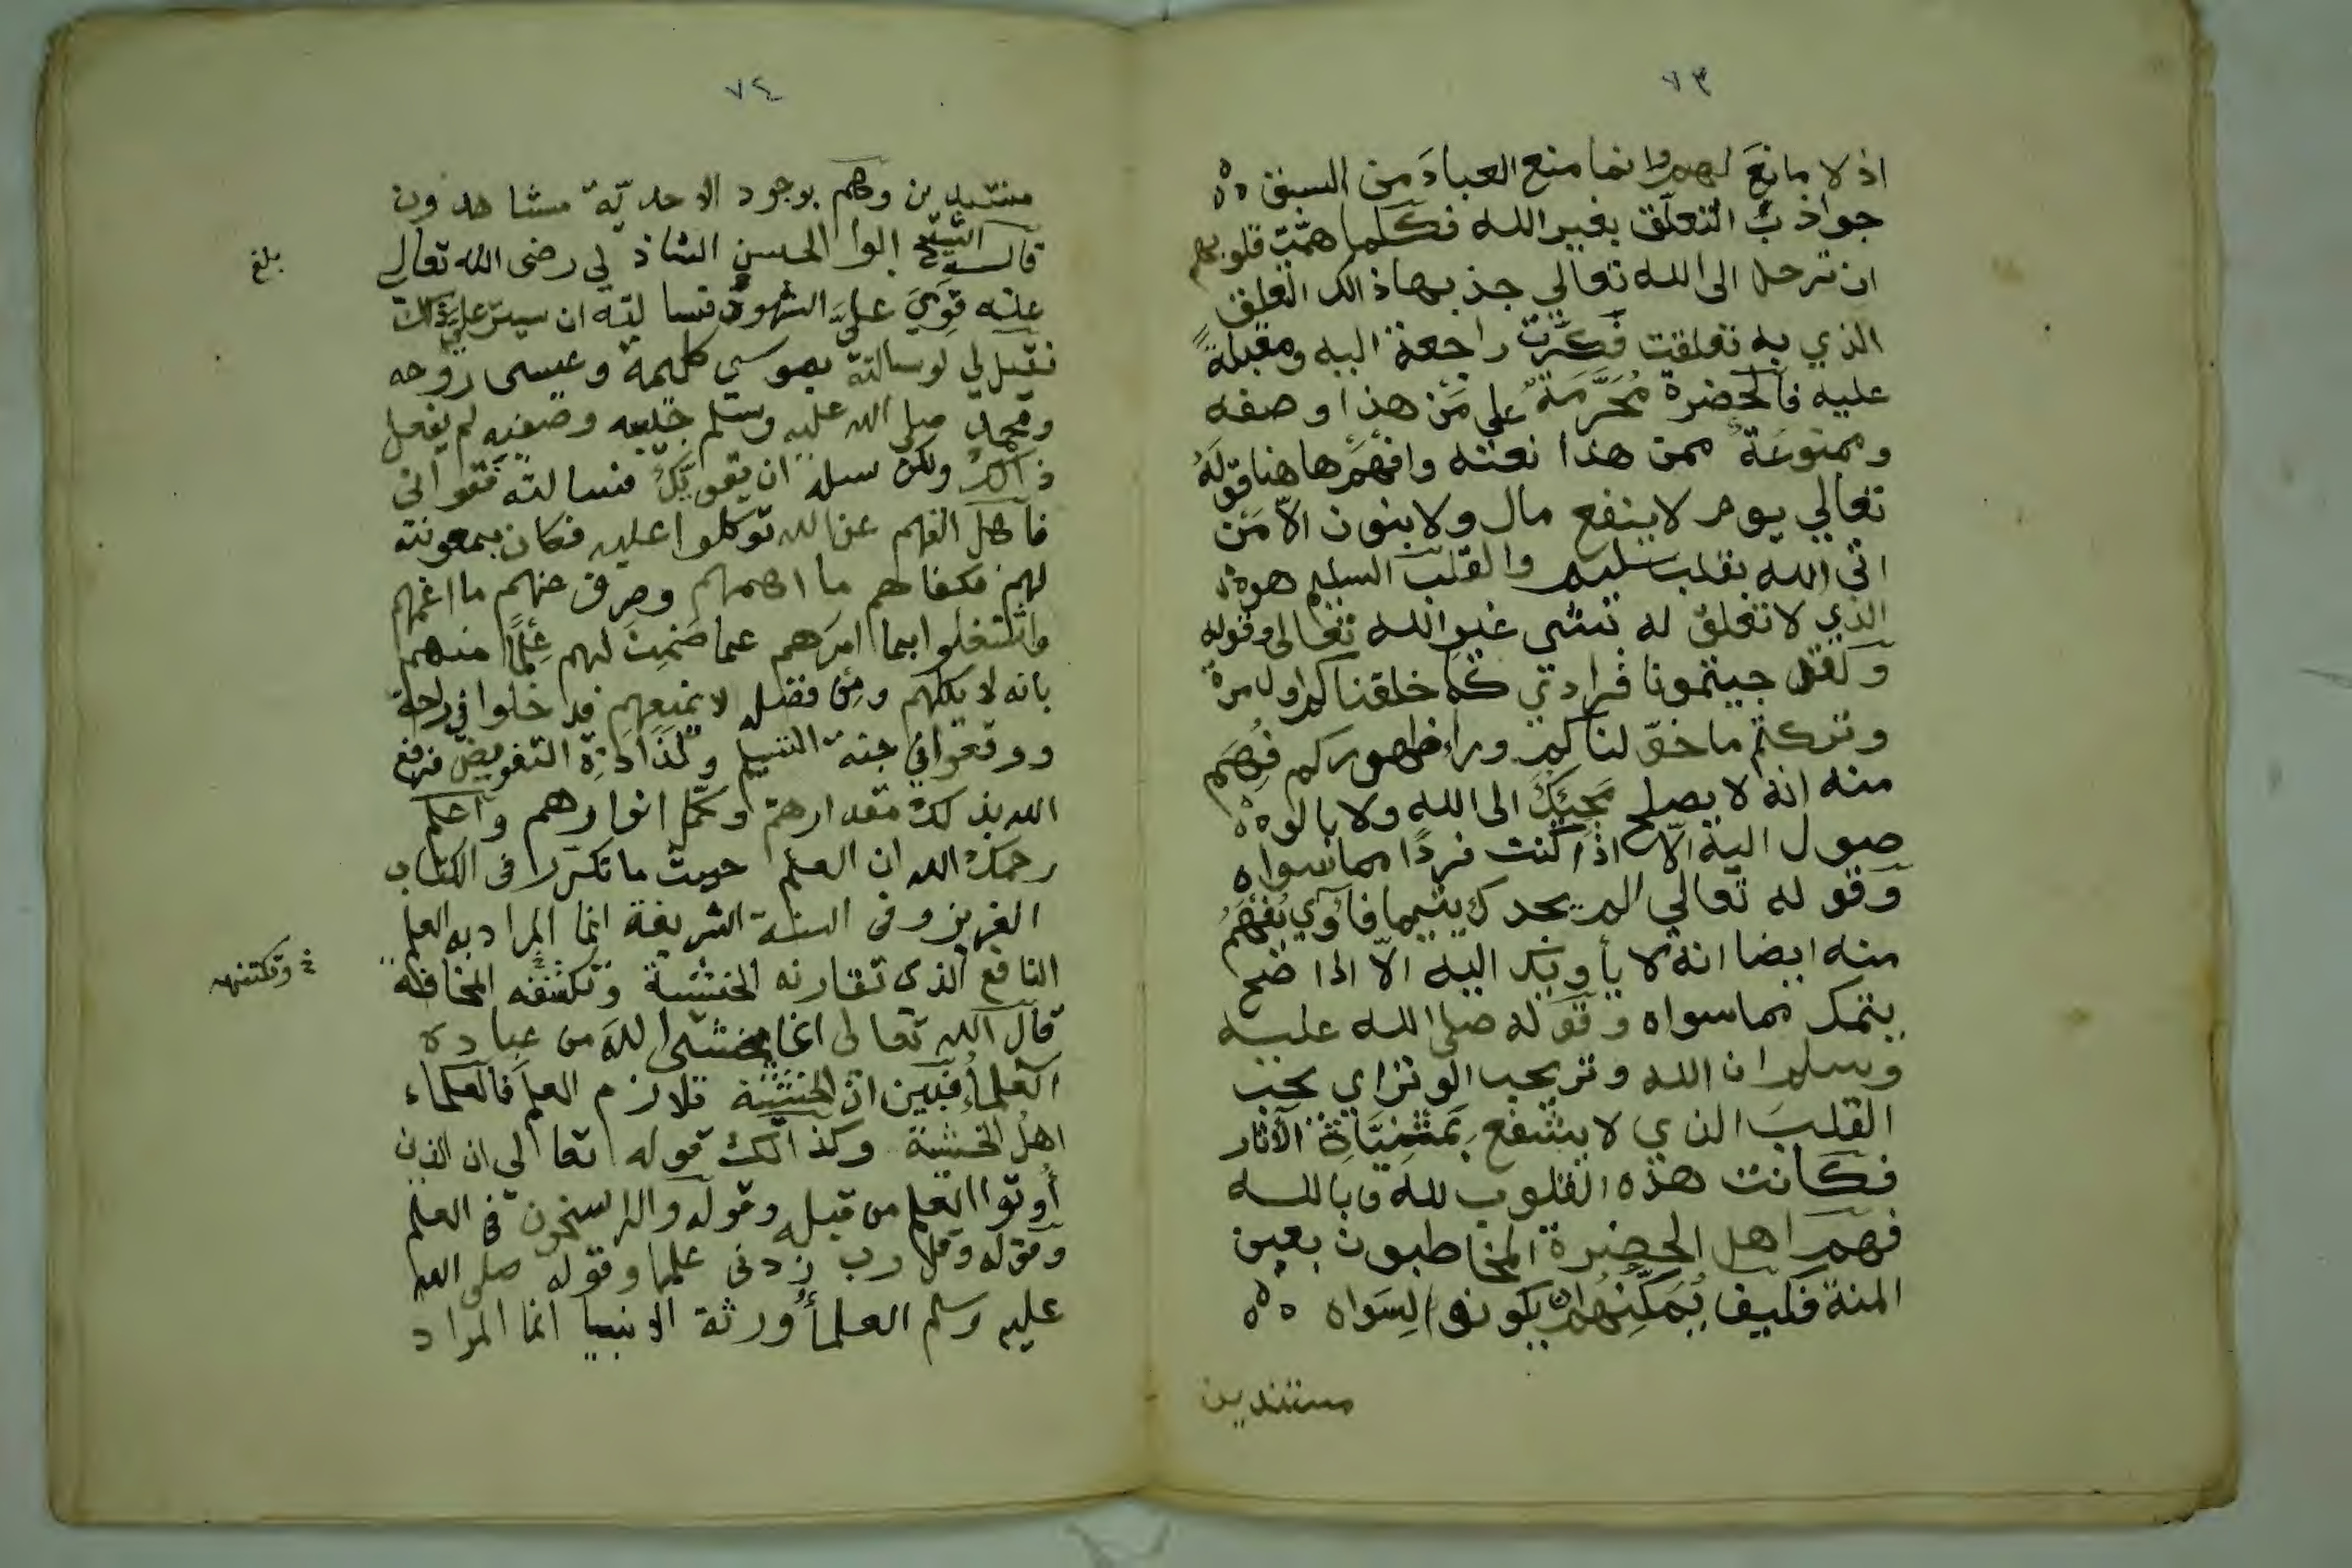 ٧٣
اذ لا مانعَ لهم وانما منع العبادَ من السبق
جواذبُ التعلّق بغير الله فكلما همّت قلوبهم
ان ترحل الى الله تعالي جذبها ذالك التعلق
الذي به تعلقت فكرّت راجعة اليه ومقبلةً
عليه فالحضرة مُحَرَّمَةٌ على مَن هذا وصفه
وممنوعَةٌ ممن هذا نعته وافهَم هاهنا قولَهُ
تعالي يوم لا ينفع مال ولا بنون الاّ مَن
اتى الله بقلب سليم والقلب السليم هو
الذي لا تعلق له بشى غير الله تعالى وقوله
ولقد جيتمونا فرادي كما خلقناكم اول مرة
وتركتم ما خوّلناكم وراء ظهوركم فُهِمَ
منه انه لا يصلح مَجِيَكَ الى الله ولا بالو
صول اليه الاّ اذا كنت فردًا مما سواه
وقوله تعالي الم يجدك يتيما فآوي يُفْهَمُ
منه ايضا انه لا يأويك اليه الاّ اذا صح
يتمك مما سواه وقوله صلى الله عليه
وسلم ان الله وتر يحب الوتر اي يحب
القلبَ الذي لا يشفع بمَثنِيّاة الآثار
فكانت هذه القلوب لله وبالله
فهم اهل الحضرة المخاطبون بعين
المنة فكيف يُمَكِّنهم ان يكونوا لِسَواه
مستندين
٧٤
مستندين وهم بوجود الاحديّة مشاهدون
قال الشيخ ابوا الحسن الشاذلي رضى الله تعالى
بلغ
عنه قوِيَ عليَّ الشهود فسالته ان يستر عليّ ذلك
فقيل لي لو سالته بموسي كلمه وعيسى روحه
ومحمد صلى الله عليه وسلم حبيبه وصفيه لم يفعل
ذالك ولكن سله ان يقويّكَ فسالته فقواني
فاهل الفهم عن الله توكلوا عليه فكان بمعونته
لهم فكفاهم ما اهمهم وصرف عنهم ما اغمهم
واشتغلوا بما امرَهم عما ضَمِنَ لهم عِلمًا منهم
بانه لا يكلهم ومِن فضله لا يمنعهم فدخلوا في راحة
ووقعوا في جنة التسليم ولذاذة التفويض فرفع
الله بذلك مقدارهم وكمّل انوارهم واعلم
رحمك الله ان العلم حيث ما تكرر فى الكتاب
العزيز وفى السنة الشريفة انما المراد به العلم
النافع الذى تقارنه الخشية وتكشفه المخافة
وتكتنفه
قال الله تعالى انما يخشى الله من عباده
العلماءُ فبين ان الخشية تلازم العلم فالعلماء
اهلُ الخشية وكذالك قوله تعالى ان الذين
أوتوا العلم من قبله وقوله والراسخون فى العلم
وقوله وقل رب زدنى علما وقوله صلى الله
عليه وسلم العلمأ ورثة الانبيا انما المراد